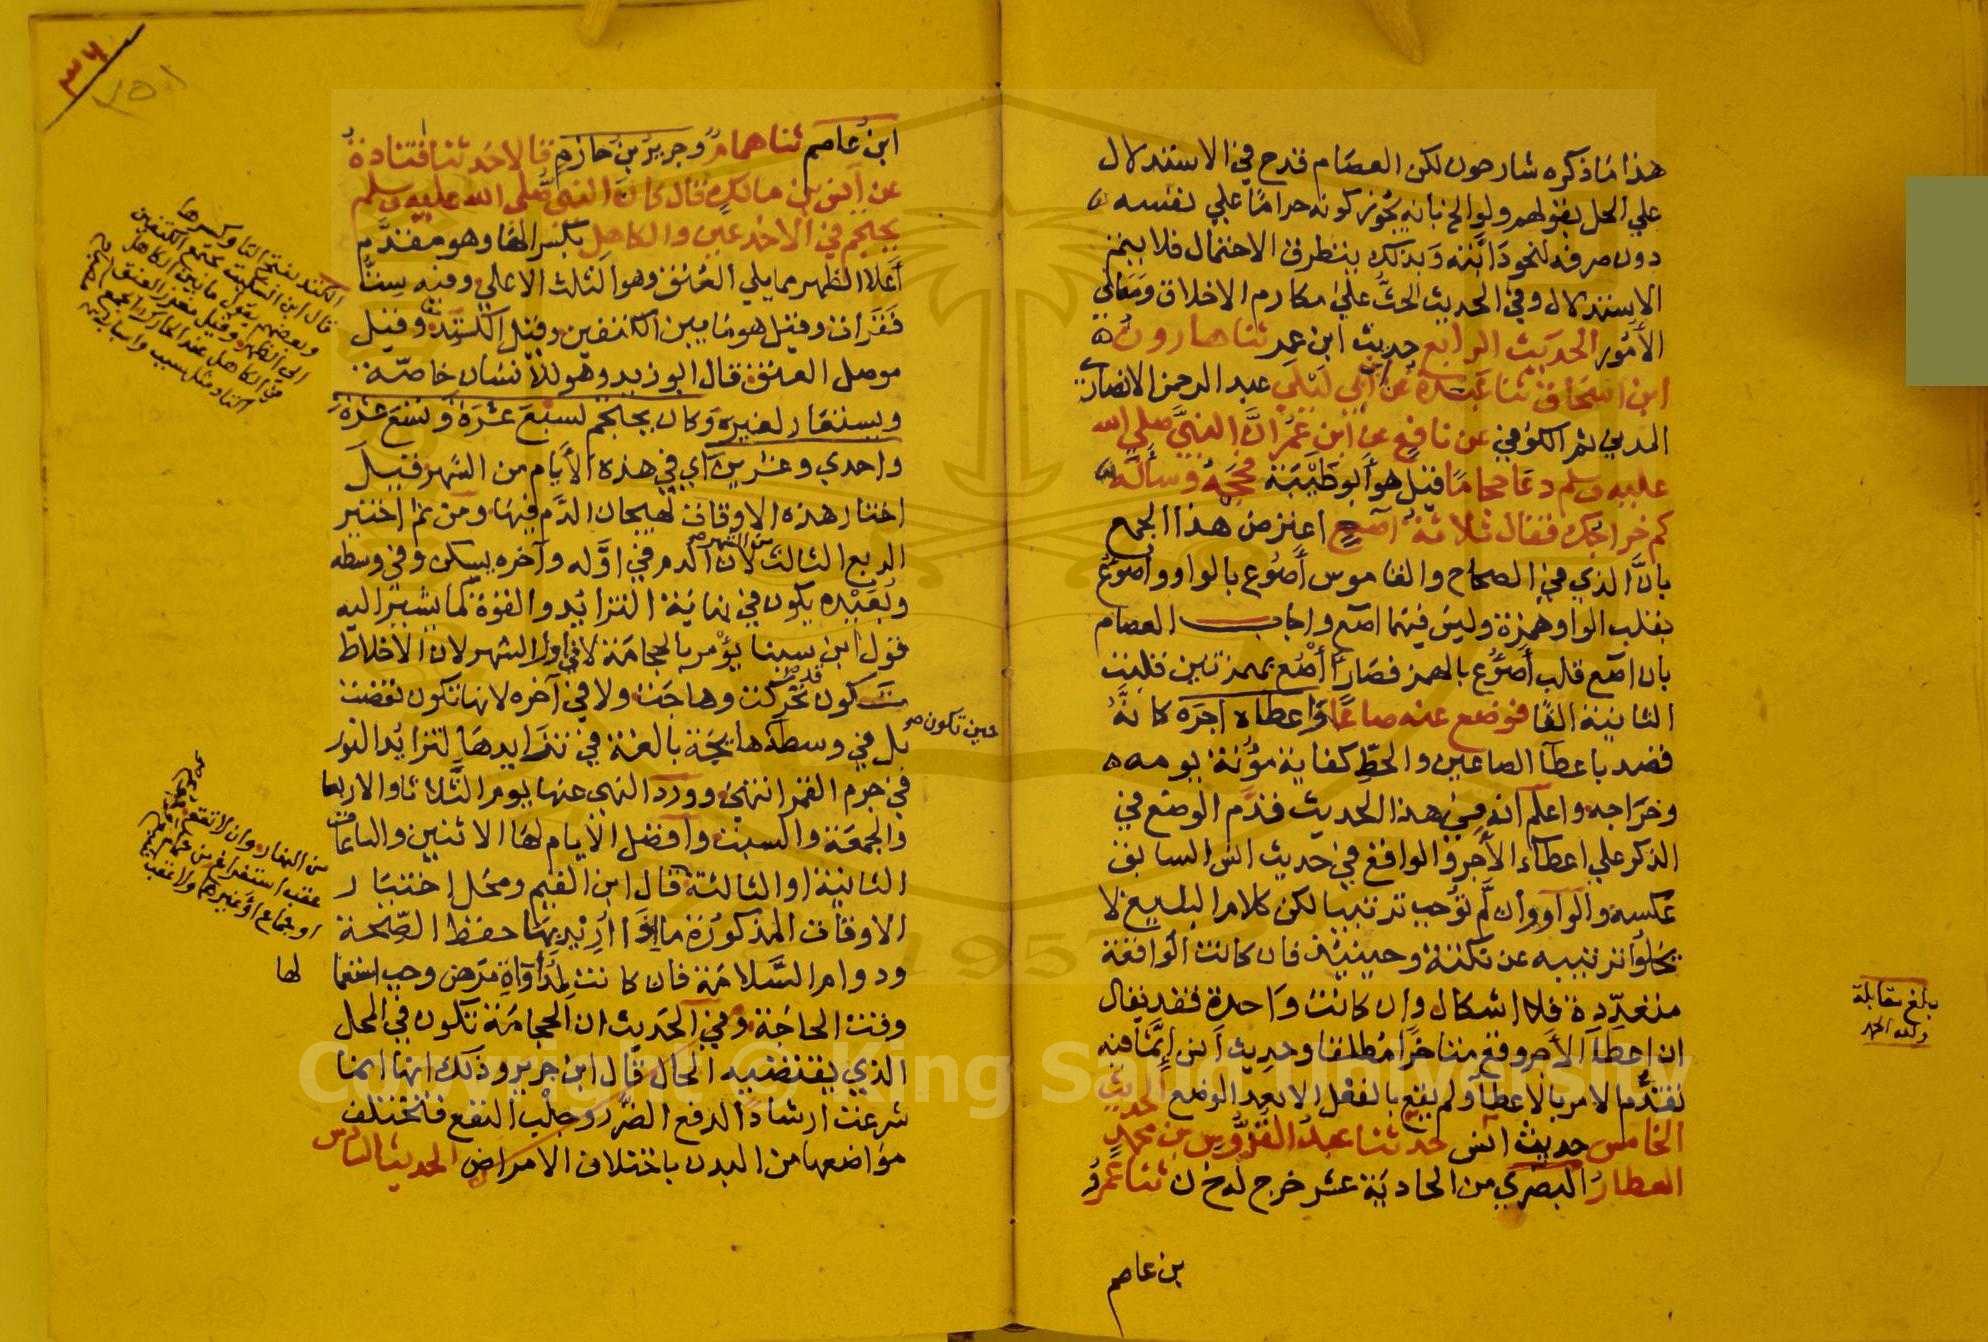 هذا ما ذكره شارحون لكن العصام قدح في الاستدلال
علي الحل بقولهم ولو الخ بانه يجوز كونه حراما علي نفسه
دون صرفه لنحو دابته وبذلك يتطرق الاحتمال فلا يتم
الاستدلال وفي الحديث الحث علي مكارم الاخلاق ومعالي
الأمور الحديث الرابع حديث ابن عمر ثنا هارون
ابن اسحاق ثنا عبدة عن ابن أبي ليلي عبد الرحمن الانصاري
المدني ثم الكوفي عن نافع عن ابن عمر ان النبي صلي الله
عليه وسلم دعا حجاما قيل هو أبو طيبة فحجمه وسأله
كم خراجك فقال ثلاثة آصع اعترض هذا الجمع
بان الذي في الصحاح والقاموس أصوع بالواو وأصؤع
بقلب الواو همزة وليس فيهما آصع واجاب العصام
بان آصع قلب أصؤع بالهمز فصار أأصع بهمزتين قلبت
الثانية الفا فوضع عنه صاعا واعطاه اجره كانه
قصد باعطآ الصاعين والحط كفاية مؤنة يومه
وخراجه واعلم انه في هذا الحديث قدم الوضع في
الذكر علي اعطاء الأجر والواقع في حديث انس السابق
عكسه والواو وأن لم توجب ترتيبا لكن كلام البليغ لا
يخلو ترتيبه عن نكتة وحينيئذ فان كانت الواقعة
متعددة فلا اشكال وان كانت واحدة فقد يقال
ان إعطآ الأجر وقع متاخرا مطلقا وحديث انس إنما فيه
تقدم الامر بالاعطآ ولم يقع بالفعل الا بعد الوضع الحديث
الخامس حديث انس حدثنا عبد القدوس بن محمد
العطار البصري من الحادية عشر خرج له خ ن ثنا عمرو
بن عاصم
بلغ مقابلة
ولله الحمد
ابن عاصم ثنا همام وجرير بن حازم قالا حدثنا قتادة
عن أنس بن مالك قال كان النبي صلي الله عليه وسلم
يحتجم في الاخدعين والكاهل بكسر الها وهو مقدم
أعلا الظهر مما يلي العنق وهو الثلث الاعلي وفيه ست
فقرات وقيل هو ما بين الكتفين وقيل الكتد وقيل
موصل العنق قال ابو زيد وهو للانسان خاصة
ويستعار لغيره وكان يحتجم لسبع عشرة وتسع عشرة
واحدي وعشرين أي في هذه الأيام من الشهر قيل
اختار هذه الاوقات لهيجان الدم فيها ومن ثم اختير
الربع الثالث من الشهر لان الدم في اوله وآخره يسكن وفي وسطه
وبعيده يكون في نهاية التزايد والقوة كما يشير اليه
قول ابن سينا يؤمر بالحجامة لا في اول الشهر لان الاخلاط
تكون قد تحركت وهاجت ولا في آخره لانها تكون نقصت
بل في وسطه هايجة بالغة في تزايدها لتزايد النور
حين تكون صح
في جرم القمر انتهي وورد النهي عنها يوم الثلاثا والاربعا
والجمعة والسبت وافضل الأيام لها الاثنين والساعات
الثانية او الثالثة قال ابن القيم ومحل إختيار
الاوقات المذكورة ما إذا اريد بها حفظ الصحة
ودوام السلامة فان كانت لمداوآة مرض وجب استعما لها
وقت الحاجة وفي الحديث ان الحجامة تكون في المحل
الذي يقتضيه الحال قال ابن جرير وذلك انها انما
شرعت ارشادا لدفع الضر وجلب النفع فتختلف
مواضعها من البدن باختلاف الامراض الحديث السادس
الكتد بفتح التا وكسرها
قال ابن السكيت مجتمع الكتفين
وبعضهم يقول ما بين الكاهل
الي الظهر وقيل مغرز العنق
من النهار وان لا تقع
عقب استفراغ من حمام
او جماع او غيرهما ولا عقب
٣٤
Copyright © King Saud University
1957